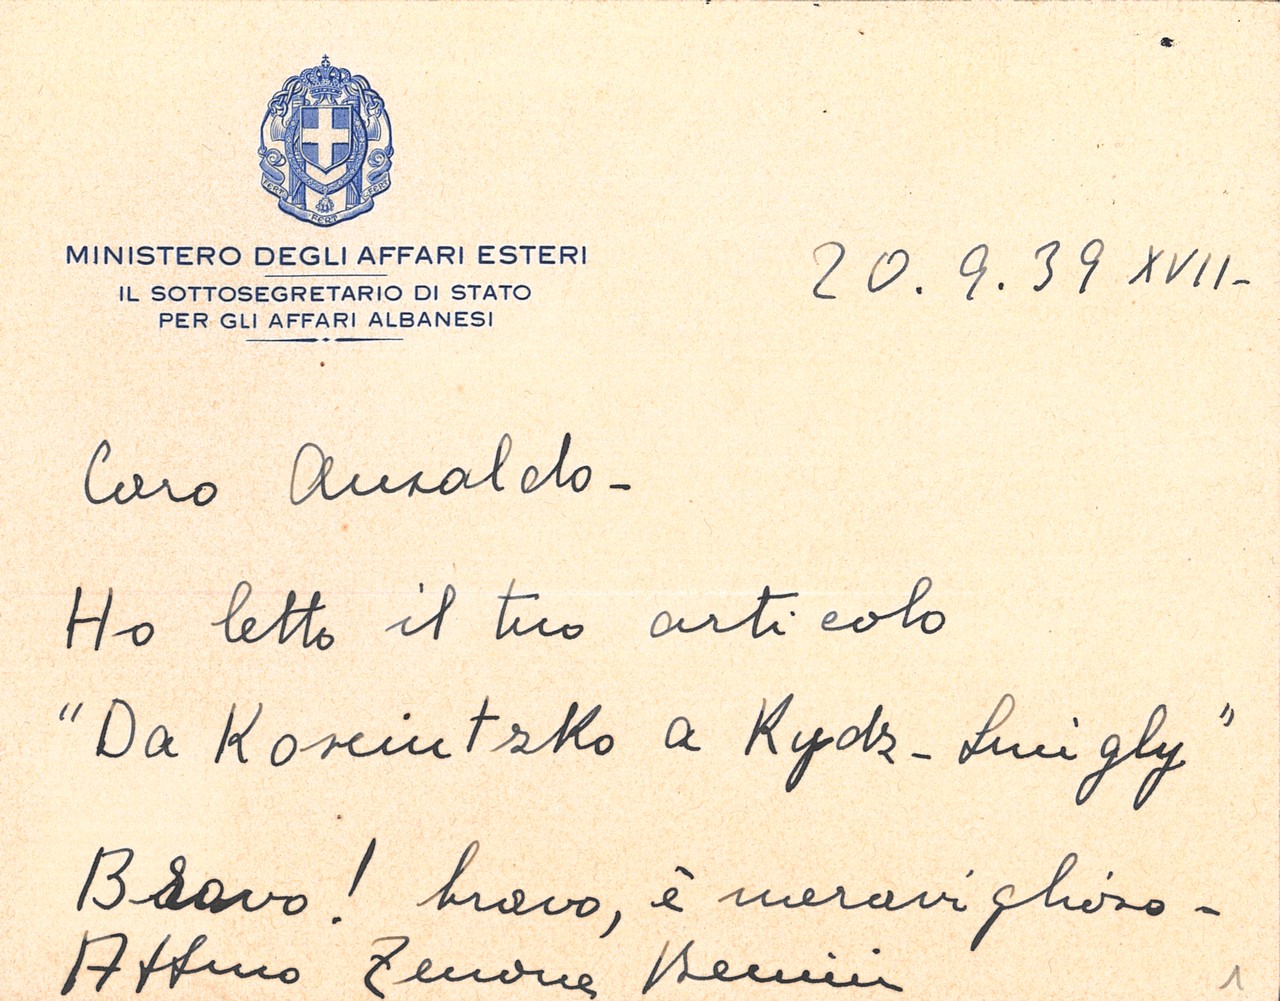 FERT FERT FERT
MINISTERO DEGLI AFFARI ESTERI
IL SOTTOSEGRETARIO DI STATO
PER GLI AFFARI ALBANESI
20.9.39 XVII-
Caro Ansaldo-
Ho letto il tuo articolo
"Da Kosciutzko a Rydz-Smigly"
Bravo! bravo, è meraviglioso-
Aff/mo Zenone Benini
1